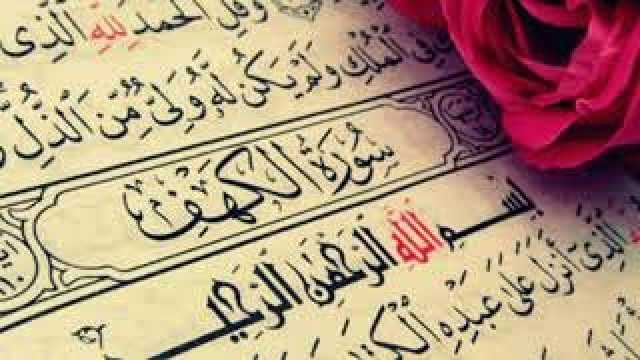 وَقُلِ الْحَمْدُ لِلَّهِ الَّذِي
فِي الْمُلْكِ وَلَمْ يَكُن لَّهُ وَلِيٌّ مِّنَ الذُّلِّ
سُورَةُ الْكَهْفِ
بِسْمِ اللَّهِ الرَّحْمَٰنِ الرَّحِيمِ
الَّذِي أَنزَلَ عَلَىٰ عَبْدِهِ الْكِتَا